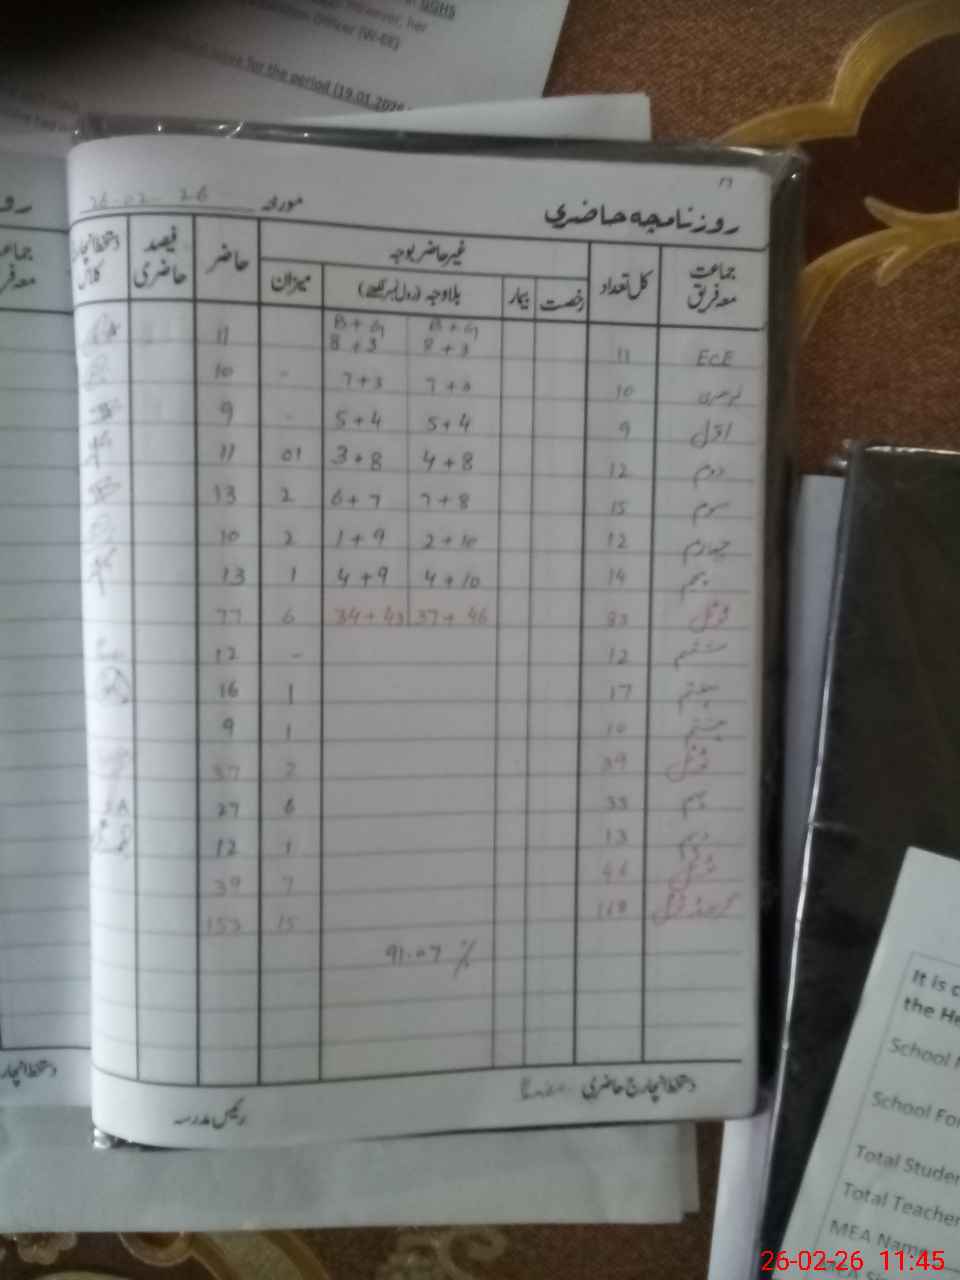 GGHS
However, her
Education Officer (W-EE)
leave for the period (19.01.2026
روزنامچہ حاضری
مورخہ 26-02-26
جماعت معہ فریق کل تعداد غیر حاضر بوجہ حاضر فیصد حاضری دستخط انچارج کلاس
رخصت بیمار بلاوجہ (رول نمبر لکھیے) میزان
B+G B+G
ECE 11 8+3 8+3 11
نرسری 10 7+3 7+3 - 10
اول 9 5+4 5+4 - 9
دوم 12 4+8 3+8 01 11
سوم 15 7+8 6+7 2 13
چہارم 12 2+10 1+9 2 10
پنجم 14 4+10 4+9 1 13
ٹوٹل 83 37+46 34+43 6 77
ششم 12 - 12
ہفتم 17 1 16
ہشتم 10 1 9
ٹوٹل 39 2 37
نہم 33 6 27
دہم 13 1 12
ٹوٹل 46 7 39
گرینڈ ٹوٹل 168 15 153
91.07 %
دستخط انچارج حاضری
رئیس مدرسہ
It is c
the He
School
School Fo
Total Studen
Total Teacher
MEA Name
26-02-26 11:45